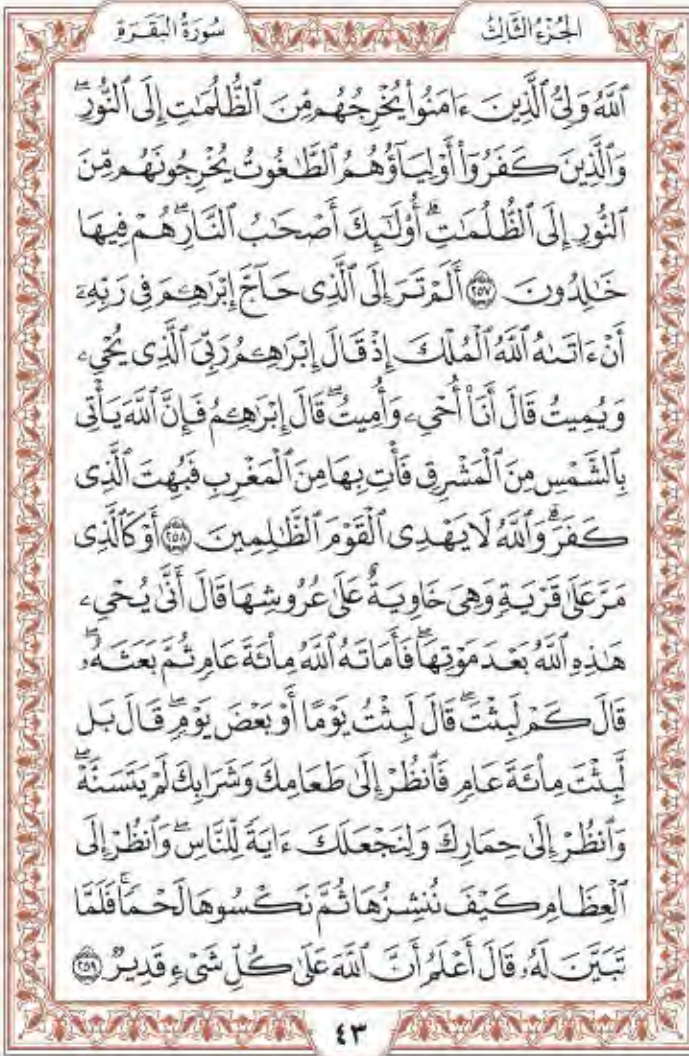 سُورَةُ الْبَقَرَةِ
الجُزْءُ الثَّالِثُ
ٱللَّهُ وَلِىُّ ٱلَّذِينَ ءَامَنُوا۟ يُخْرِجُهُم مِّنَ ٱلظُّلُمَـٰتِ إِلَى ٱلنُّورِۖ
وَٱلَّذِينَ كَفَرُوٓا۟ أَوْلِيَآؤُهُمُ ٱلطَّـٰغُوتُ يُخْرِجُونَهُم مِّنَ
ٱلنُّورِ إِلَى ٱلظُّلُمَـٰتِۗ أُو۟لَـٰٓئِكَ أَصْحَـٰبُ ٱلنَّارِۖ هُمْ فِيهَا
خَـٰلِدُونَ ٢٥٧ أَلَمْ تَرَ إِلَى ٱلَّذِى حَآجَّ إِبْرَٰهِـۧمَ فِى رَبِّهِۦٓ
أَنْ ءَاتَىٰهُ ٱللَّهُ ٱلْمُلْكَ إِذْ قَالَ إِبْرَٰهِـۧمُ رَبِّىَ ٱلَّذِى يُحْىِۦ
وَيُمِيتُ قَالَ أَنَا۠ أُحْىِۦ وَأُمِيتُۖ قَالَ إِبْرَٰهِـۧمُ فَإِنَّ ٱللَّهَ يَأْتِى
بِٱلشَّمْسِ مِنَ ٱلْمَشْرِقِ فَأْتِ بِهَا مِنَ ٱلْمَغْرِبِ فَبُهِتَ ٱلَّذِى
كَفَرَۗ وَٱللَّهُ لَا يَهْدِى ٱلْقَوْمَ ٱلظَّـٰلِمِينَ ٢٥٨ أَوْ كَٱلَّذِى
مَرَّ عَلَىٰ قَرْيَةٍ وَهِىَ خَاوِيَةٌ عَلَىٰ عُرُوشِهَا قَالَ أَنَّىٰ يُحْىِۦ
هَـٰذِهِ ٱللَّهُ بَعْدَ مَوْتِهَاۖ فَأَمَاتَهُ ٱللَّهُ مِا۟ئَةَ عَامٍ ثُمَّ بَعَثَهُۥۖ
قَالَ كَمْ لَبِثْتَۖ قَالَ لَبِثْتُ يَوْمًا أَوْ بَعْضَ يَوْمٍۖ قَالَ بَل
لَّبِثْتَ مِا۟ئَةَ عَامٍ فَٱنظُرْ إِلَىٰ طَعَامِكَ وَشَرَابِكَ لَمْ يَتَسَنَّهْۖ
وَٱنظُرْ إِلَىٰ حِمَارِكَ وَلِنَجْعَلَكَ ءَايَةً لِّلنَّاسِۖ وَٱنظُرْ إِلَى
ٱلْعِظَامِ كَيْفَ نُنشِزُهَا ثُمَّ نَكْسُوهَا لَحْمًاۚ فَلَمَّا
تَبَيَّنَ لَهُۥ قَالَ أَعْلَمُ أَنَّ ٱللَّهَ عَلَىٰ كُلِّ شَىْءٍ قَدِيرٌ ٢٥٩
٤٣